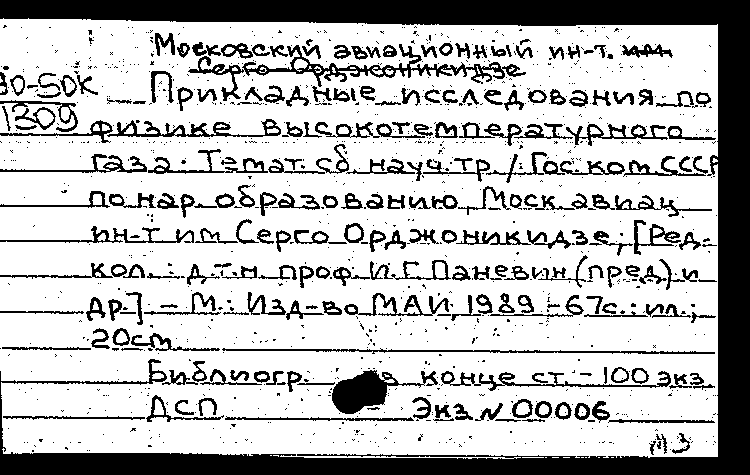 Московский авиационный ин-т. им.
Серго Орджоникидзе
30-SOK Прикладные исследования по
1309 физике высокотемпературного
газа. Темат. сб. науч. тр. / Гос. ком. СССР
по нар. образованию, Моск. авиац.
ин-т им Серго Орджоникидзе; [Ред-
кол.: д.т.н. проф. И.Г. Паневин (пред.) и
др.] – М.: Изд-во МАИ, 1989 – 67с.: ил.;
20cm
Библиогр. в конце ст. – 100 экз.
ДСП Экз N 00006
МЗ